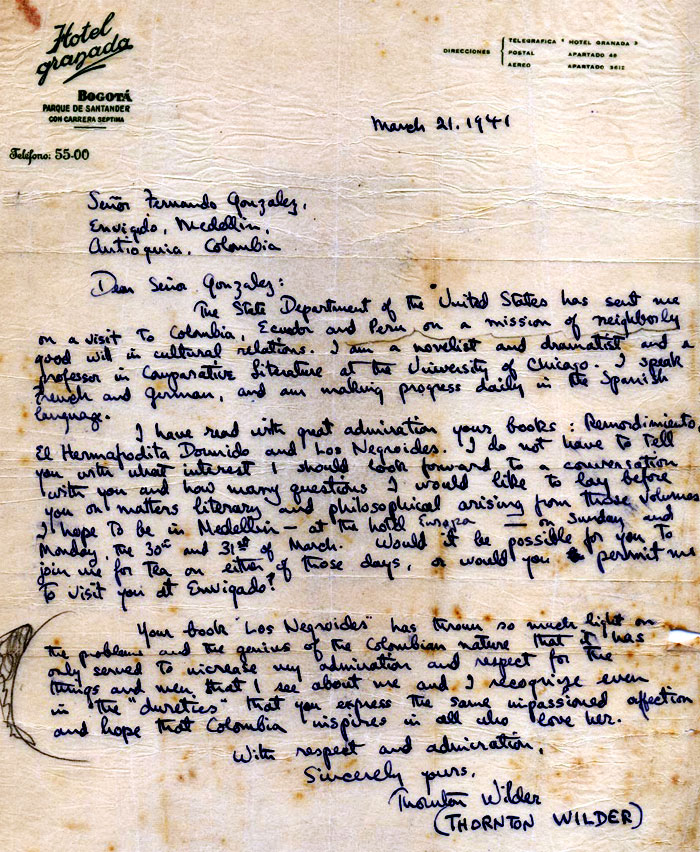 Hotel
Granada
BOGOTÁ
PARQUE DE SANTANDER
CON CARRERA SEPTIMA
Teléfono: 55-00
DIRECCIONES
TELEGRAFICA " HOTEL GRANADA "
POSTAL APARTADO 49
AEREO APARTADO 3612
March 21. 1941
Señor Fernando Gonzalez,
Envigado, Medellin,
Antioquia, Colombia
Dear Señor Gonzalez:
The State Department of the United States has sent me
on a visit to Colombia, Ecuador and Peru on a mission of neighborly
good will in cultural relations. I am a novelist and dramatist and a
professor in Comparative Literature at the University of Chicago. I speak
French and German, and am making progress daily in the Spanish
language.
I have read with great admiration your books: Remordimiento,
El Hermafrodita Dormido and Los Negroides. I do not have to tell
you with what interest I should look forward to a conversation
with you and how many questions I would like to lay before
you on matters literary and philosophical arising from those volumes
I hope to be in Medellin — at the hotel Europa — on Sunday and
Monday, the 30th and 31st of March. Would it be possible for you to
join me for tea on either of those days, or would you permit me
to visit you at Envigado?
Your book "Los Negroides" has thrown so much light on
the problems and the genius of the Colombian nature that it has
only served to increase my admiration and respect for the
things and men that I see about me and I recognize even
in the "duretés" that you express the same impassioned affection
and hope that Colombia inspires in all who love her.
With respect and admiration,
Sincerely yours,
Thornton Wilder
(THORNTON WILDER)